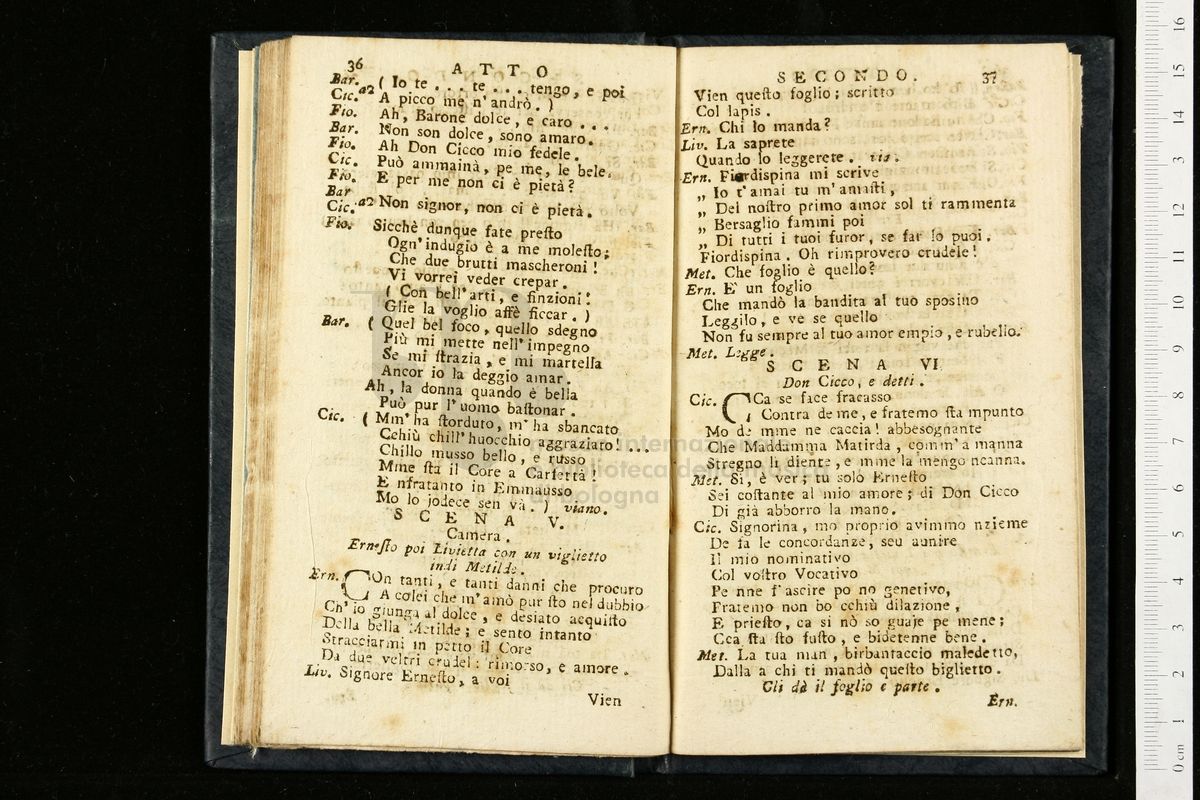 36 ATTO
Bar.
Cic. a2 ( Io te . . . te . . . tengo, e poi
A picco me n'andrò. )
Fio. Ah, Barone dolce, e caro . . .
Bar. Non son dolce, sono amaro.
Fio. Ah Don Cicco mio fedele.
Cic. Può ammainà, pe me, le bele.
Fio. E per me non ci è pietà?
Bar
Cic. a2 Non signor, non ci è pietà.
Fio. Sicchè dunque fate preſto
Ogn'indugio è a me moleſto;
Che due brutti mascheroni!
Vi vorrei veder crepar.
( Con bell'arti, e finzioni!
Glie la voglio affè ficcar. )
Bar. ( Quel bel foco, quello sdegno
Più mi mette nell'impegno
Se mi ſtrazia, e mi martella
Ancor io la deggio amar.
Ah, la donna quando è bella
Può pur l'uomo baſtonar.
Cic. ( Mm'ha ſtorduto, m'ha sbancato
Cchiù chill'huocchio aggraziato! ...
Chillo musso bello, e russo
Mme ſta il Core a Carfettà!
E nfratanto in Emmausso
Mo lo jodece sen và. ) viano.
SCENA V.
Camera.
Erneſto poi Livietta con un viglietto
indi Metilde.
Ern. COn tanti, e tanti danni che procuro
A colei che m'amò pur ſto nel dubbio
Ch'io giunga al dolce, e desiato acquiſto
Della bella Metilde; e sento intanto
Stracciarmi in petto il Core
Da due veltri crudeli: rimorso, e amore.
Liv. Signore Erneſto, a voi
Vien
SECONDO. 37
Vien queſto foglio; scritto
Col lapis.
Ern. Chi lo manda?
Liv. La saprete
Quando lo leggerete. via.
Ern. Fiordispina mi scrive
„ Io t'amai tu m'amaſti,
„ Del noſtro primo amor sol ti rammenta
„ Bersaglio fammi poi
„ Di tutti i tuoi furor, se far lo puoi.
Fiordispina. Oh rimprovero crudele!
Met. Che foglio è quello?
Ern. E' un foglio
Che mandò la bandita al tuo sposino
Leggilo, e ve se quello
Non fu sempre al tuo amor empio, e rubello.
Met. Legge.
SCENA VI.
Don Cicco, e detti.
Cic. CCa se face fracasso
Contra de me, e fratemo ſta mpunto
Mo de mme ne caccia! abbesognante
Che Maddamma Matirda, comm'a manna
Stregno li diente, e mme la mengo ncanna.
Met. Sì, è ver; tu solo Erneſto
Sei coſtante al mio amore; di Don Cicco
Di già abborro la mano.
Cic. Signorina, mo proprio avimmo nzieme
De fa le concordanze, seu aunire
Il mio nominativo
Col voſtro Vocativo
Pe nne f'ascire po no genetivo,
Fratemo non bo cchiù dilazione,
E prieſto, ca si nò so guaje pe mene;
Cca ſta ſto fuſto, e bidetenne bene.
Met. La tua man, birbantaccio maledetto,
Dalla a chi ti mandò queſto biglietto.
Gli dà il foglio e parte.
Ern.